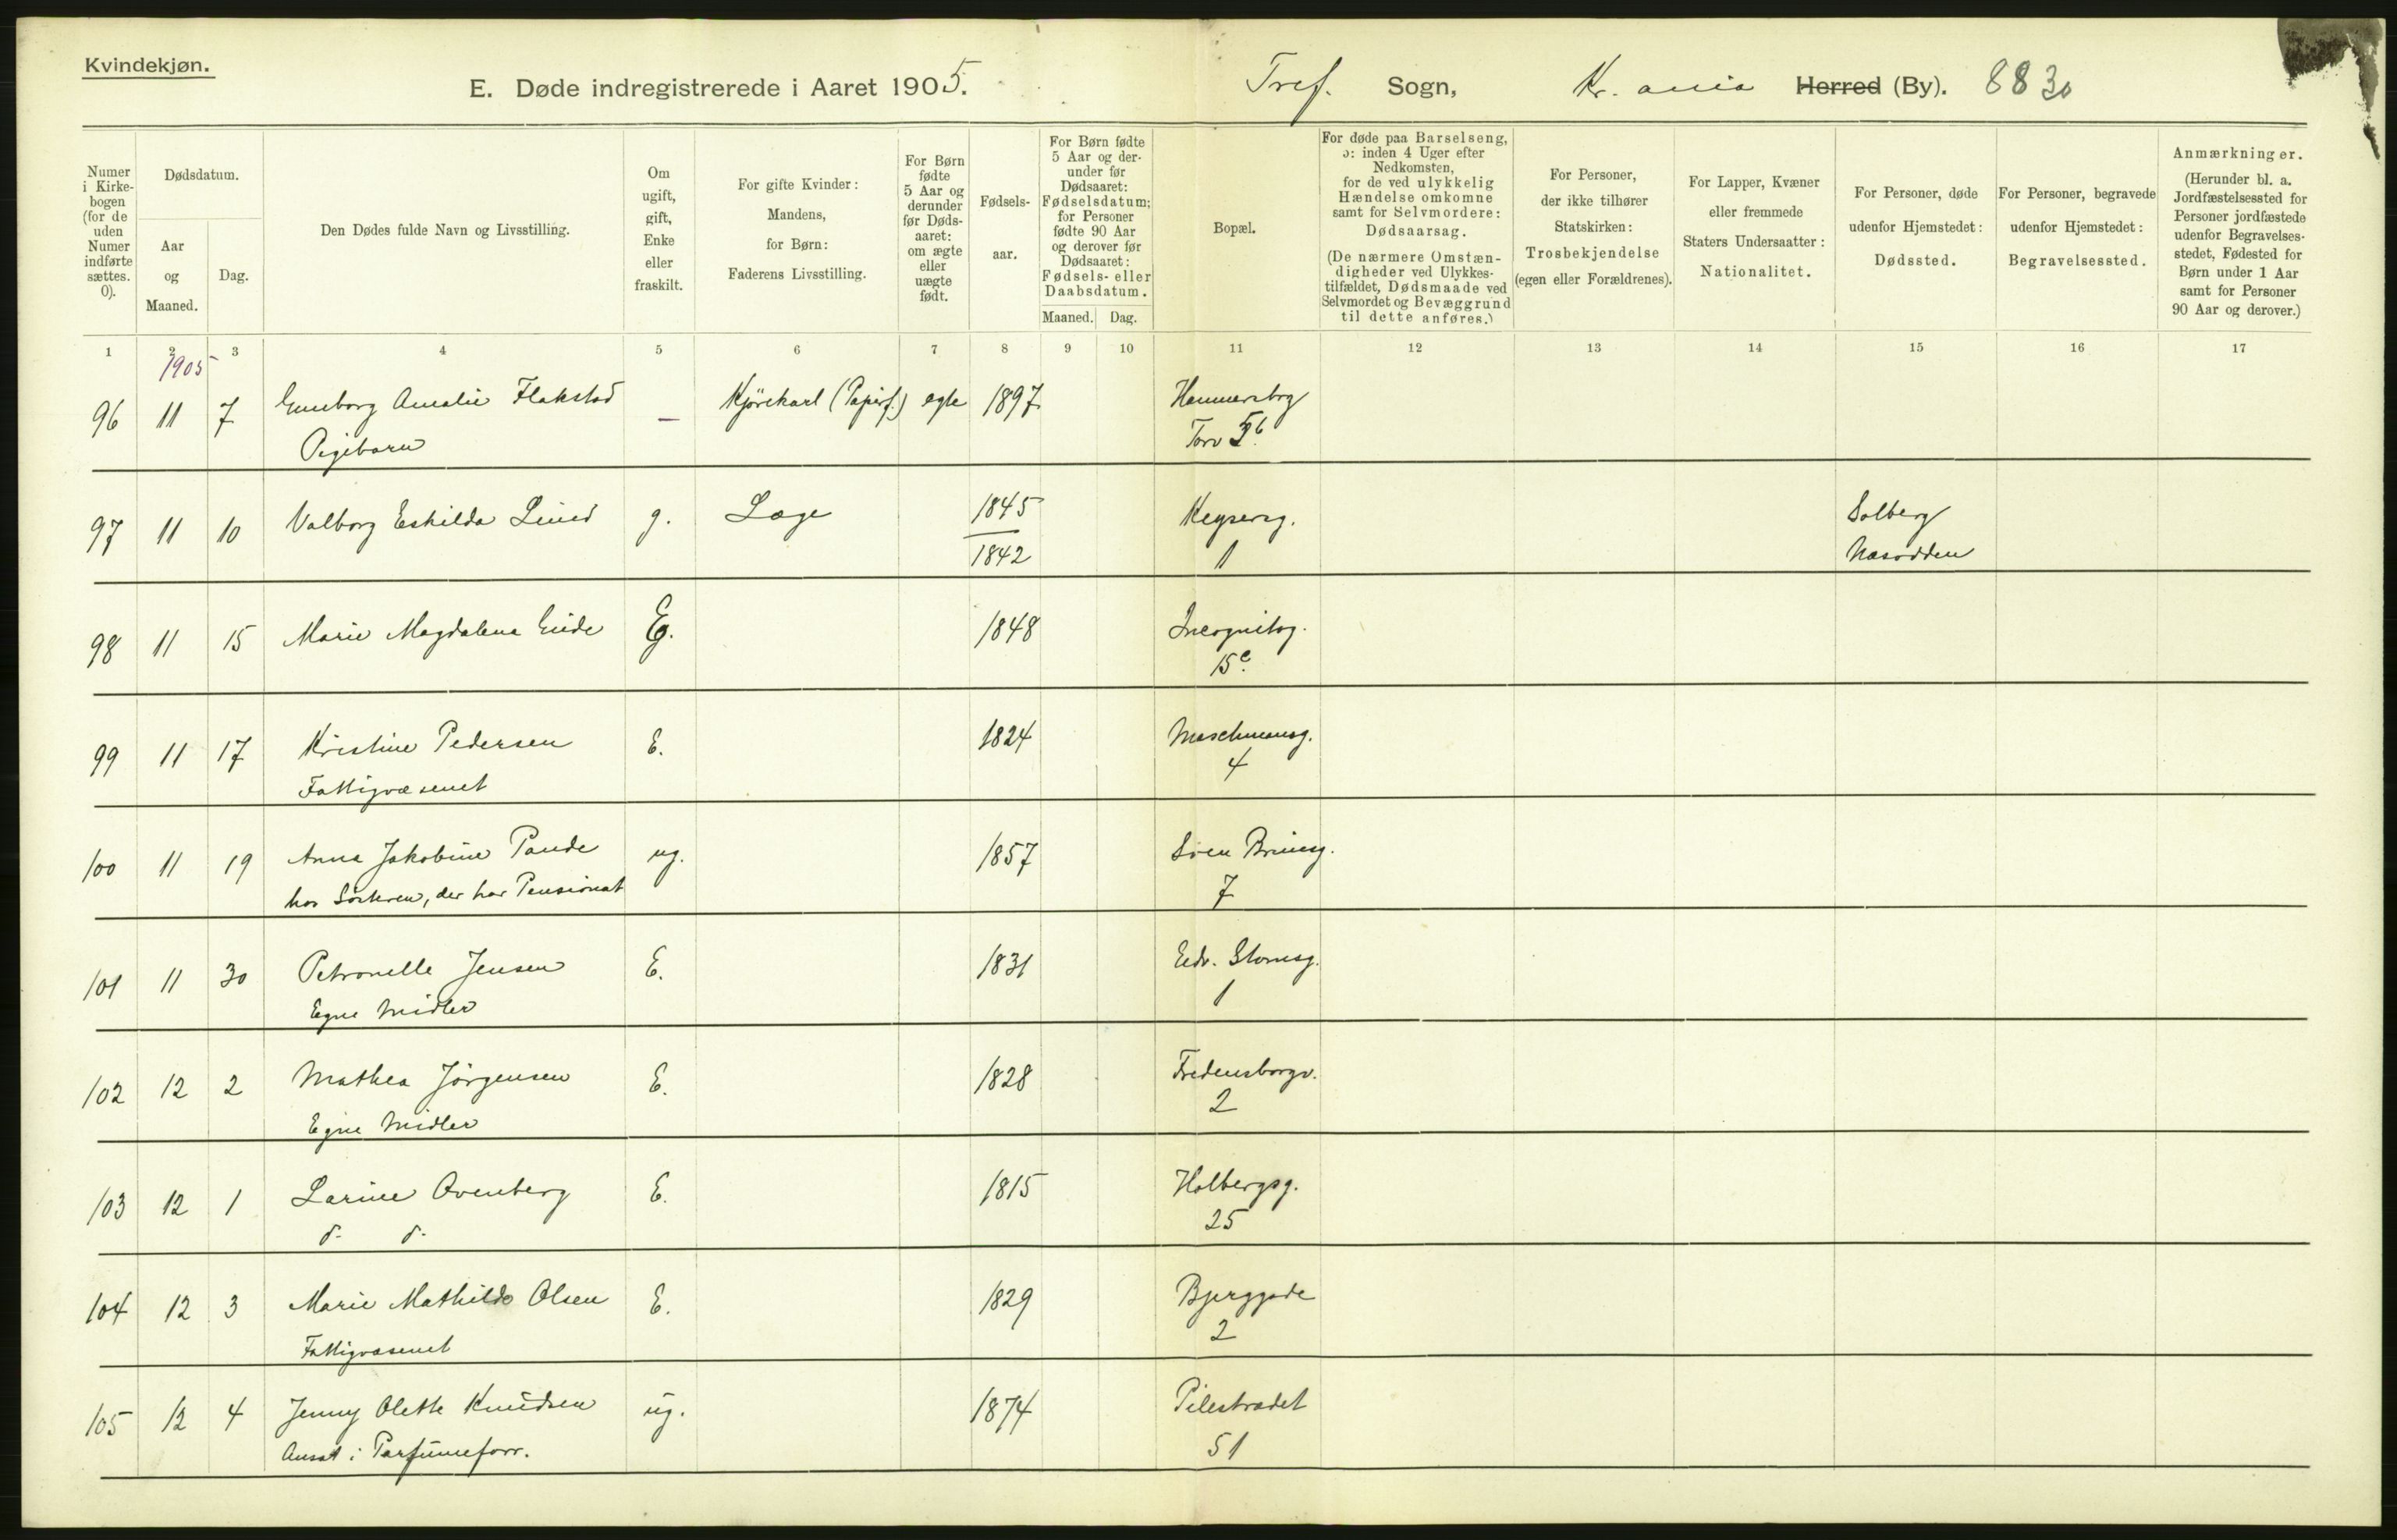 Kvindekjøn.
E. Døde indregistrerede i Aaret 1905. Tref. Sogn, Kr. ania Herred (By). 8830
Numer i Kirke-bogen (for de uden Numer indførte sættes. 0).
Dødsdatum.
Aar og Maaned.
Dag.
Den Dødes fulde Navn og Livsstilling.
Om ugift, gift, Enke eller fraskilt.
For gifte Kvinder: Mandens, for Børn: Faderens Livsstilling.
For Børn fødte 5 Aar og derunder før Døds-aaret: om ægte eller uægte født.
Fødsels-aar.
For Børn fødte 5 Aar og der-under før Dødsaaret: Fødselsdatum; for Personer fødte 90 Aar og derover før Dødsaaret: Fødsels- eller Daabsdatum.
Maaned. Dag.
Bopæl.
For døde paa Barselseng, ɔ: inden 4 Uger efter Nedkomsten, for de ved ulykkelig Hændelse omkomne samt for Selvmordere: Dødsaarsag.
(De nærmere Omstæn-digheder ved Ulykkes-tilfældet, Dødsmaade ved Selvmordet og Bevæggrund til dette anføres.)
For Personer, der ikke tilhører Statskirken: Trosbekjendelse (egen eller Forældrenes).
For Lapper, Kvæner eller fremmede Staters Undersaatter: Nationalitet.
For Personer, døde udenfor Hjemstedet: Dødssted.
For Personer, begravede udenfor Hjemstedet: Begravelsessted.
Anmærkninger.
(Herunder bl. a. Jordfæstelsessted for Personer jordfæstede udenfor Begravelses-stedet, Fødested for Børn under 1 Aar samt for Personer 90 Aar og derover.)
1 2 3 4 5 6 7 8 9 10 11 12 13 14 15 16 17
1905
96 11 7 Amalie Flakstad — Kjørekarl (Papirf.) egte 1897 Hammersbrg
Pigebarn Torv
97 11 10 Valborg Eskilda Lund g. Læge 1845 Keysersg. Solberg
1842 1 Næsodden
98 11 15 Marie Magdalena Eide E. 1848 Incognitog.
15c.
99 11 17 Kristine Pedersen E. 1824 Maschmansg.
Fattigvæsenet 4
100 11 19 Anna Jakobine Paude ug. 1857 Sven Bruunsg.
hos Søsteren, der har Pensionat 7
101 11 30 Petronelle Jensen E. 1831 Edv. Stormsg.
Egne Midler 1
102 12 2 Mathea Jørgensen E. 1828 Fredensborgv.
Egne Midler 2
103 12 1 Larine Ovenberg E. 1815 Holbergsg.
d. d. 25
104 12 3 Marie Mathilde Olsen E. 1829 Bjerggade
Fattigvæsenet 2
105 12 4 Jenny Olette Knudsen ug. 1874 Pilestrædet
Ansat i Parfumeforr. 51